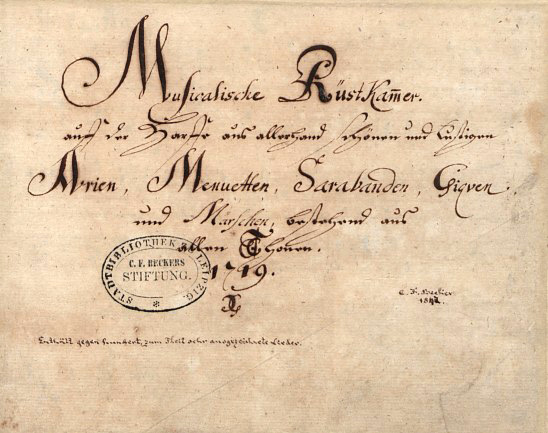 Musicalische RüstKam̅er.
auff der Harffe aus allerhand schönen und lustigen
Arien, Menuetten, Sarabanden, Giqven
und Märschen, bestehend aus
allen Thonen.
1719.
STADTBIBLIOTHEK LEIPZIG.
C. F. BECKERS
STIFTUNG.
C. F. Becker
Enthält gegen hundert, zum Theil sehr ausgezeichnete Lieder.